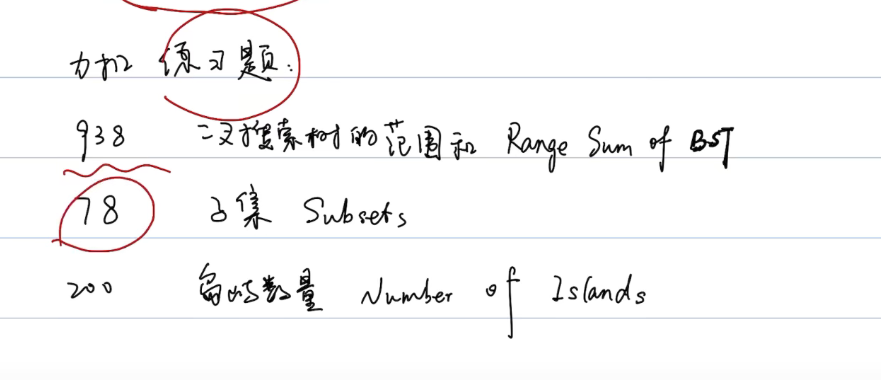 力扣 练习题:
938 二叉搜索树的范围和 Range Sum of BST
78 子集 Subsets
200 岛屿数量 Number of Islands